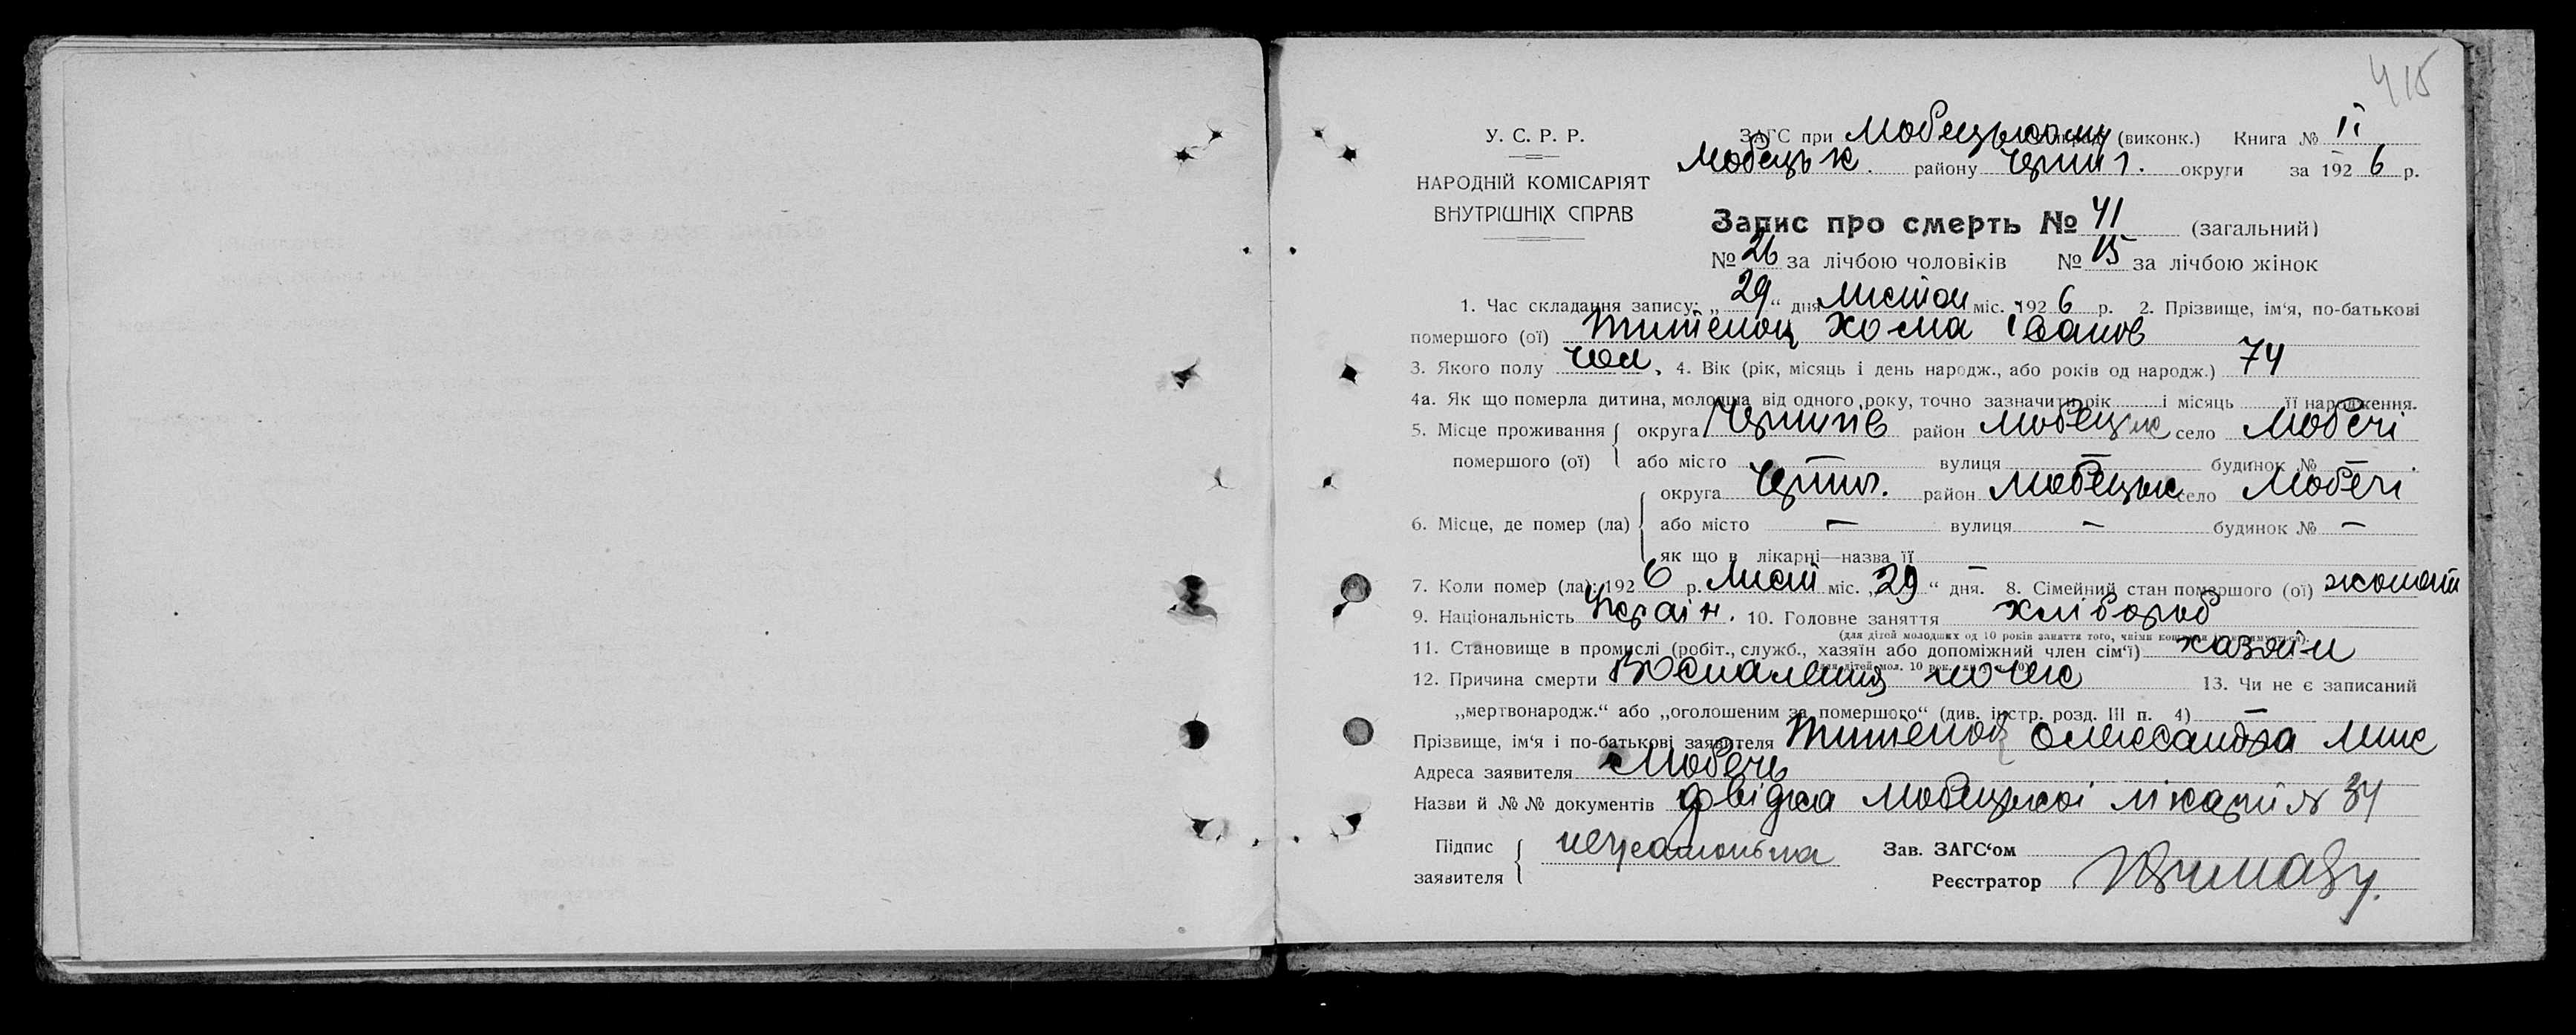 415
У. С. Р. Р.
НАРОДНІЙ КОМІСАРІЯТ
ВНУТРІШНІХ СПРАВ
ЗАГС при Любецькому (виконк.) Книга № II
Любецьк. району Черниг. округи за 1926 р.
Запис про смерть № 41 (загальний)
№ 26 за лічбою чоловіків № 15 за лічбою жінок
1. Час складання запису: „29“ дня листоп міс. 1926 р. 2. Прізвище, ім‘я, по-батькові
помершого (ої) Хома Іванов
3. Якого полу чол, 4. Вік (рік, місяць і день народж., або років од народж.) 74
4а. Як що померла дитина, молодша від одного року, точно зазначити рік і місяць її народження.
5. Місце проживання округа Чернигів район Любецьк село Любечі
помершого (ої) або місто — вулиця — будинок № —.
округа Черниг. район Любецьк село Любечі
6. Місце, де помер (ла) або місто — вулиця — будинок № —
як що в лікарні—назва її
7. Коли помер (ла): 1926 р. лист міс. „29“ дня. 8. Сімейний стан помершого (ої) жонат
9. Національність Україн. 10. Головне заняття хлібороб
(для дітей молодших од 10 років заняття того, чиїми коштами утримується).
11. Становище в промислі (робіт., служб., хазяїн або допоміжний член сім‘ї) хазяїн
12. Причина смерти Воспаления почек 13. Чи не є записаний
„мертвонародж.“ або „оголошеним за помершого“ (див. інстр. розд. III п. 4) —
Прізвище, ім‘я і по-батькові заявителя Олександра
Адреса заявителя Любечь
Назви й № № документів довідка Любецької лікарні № 34
Підпис неграмотна Зав. ЗАГС‘ом
заявителя Реєстратор